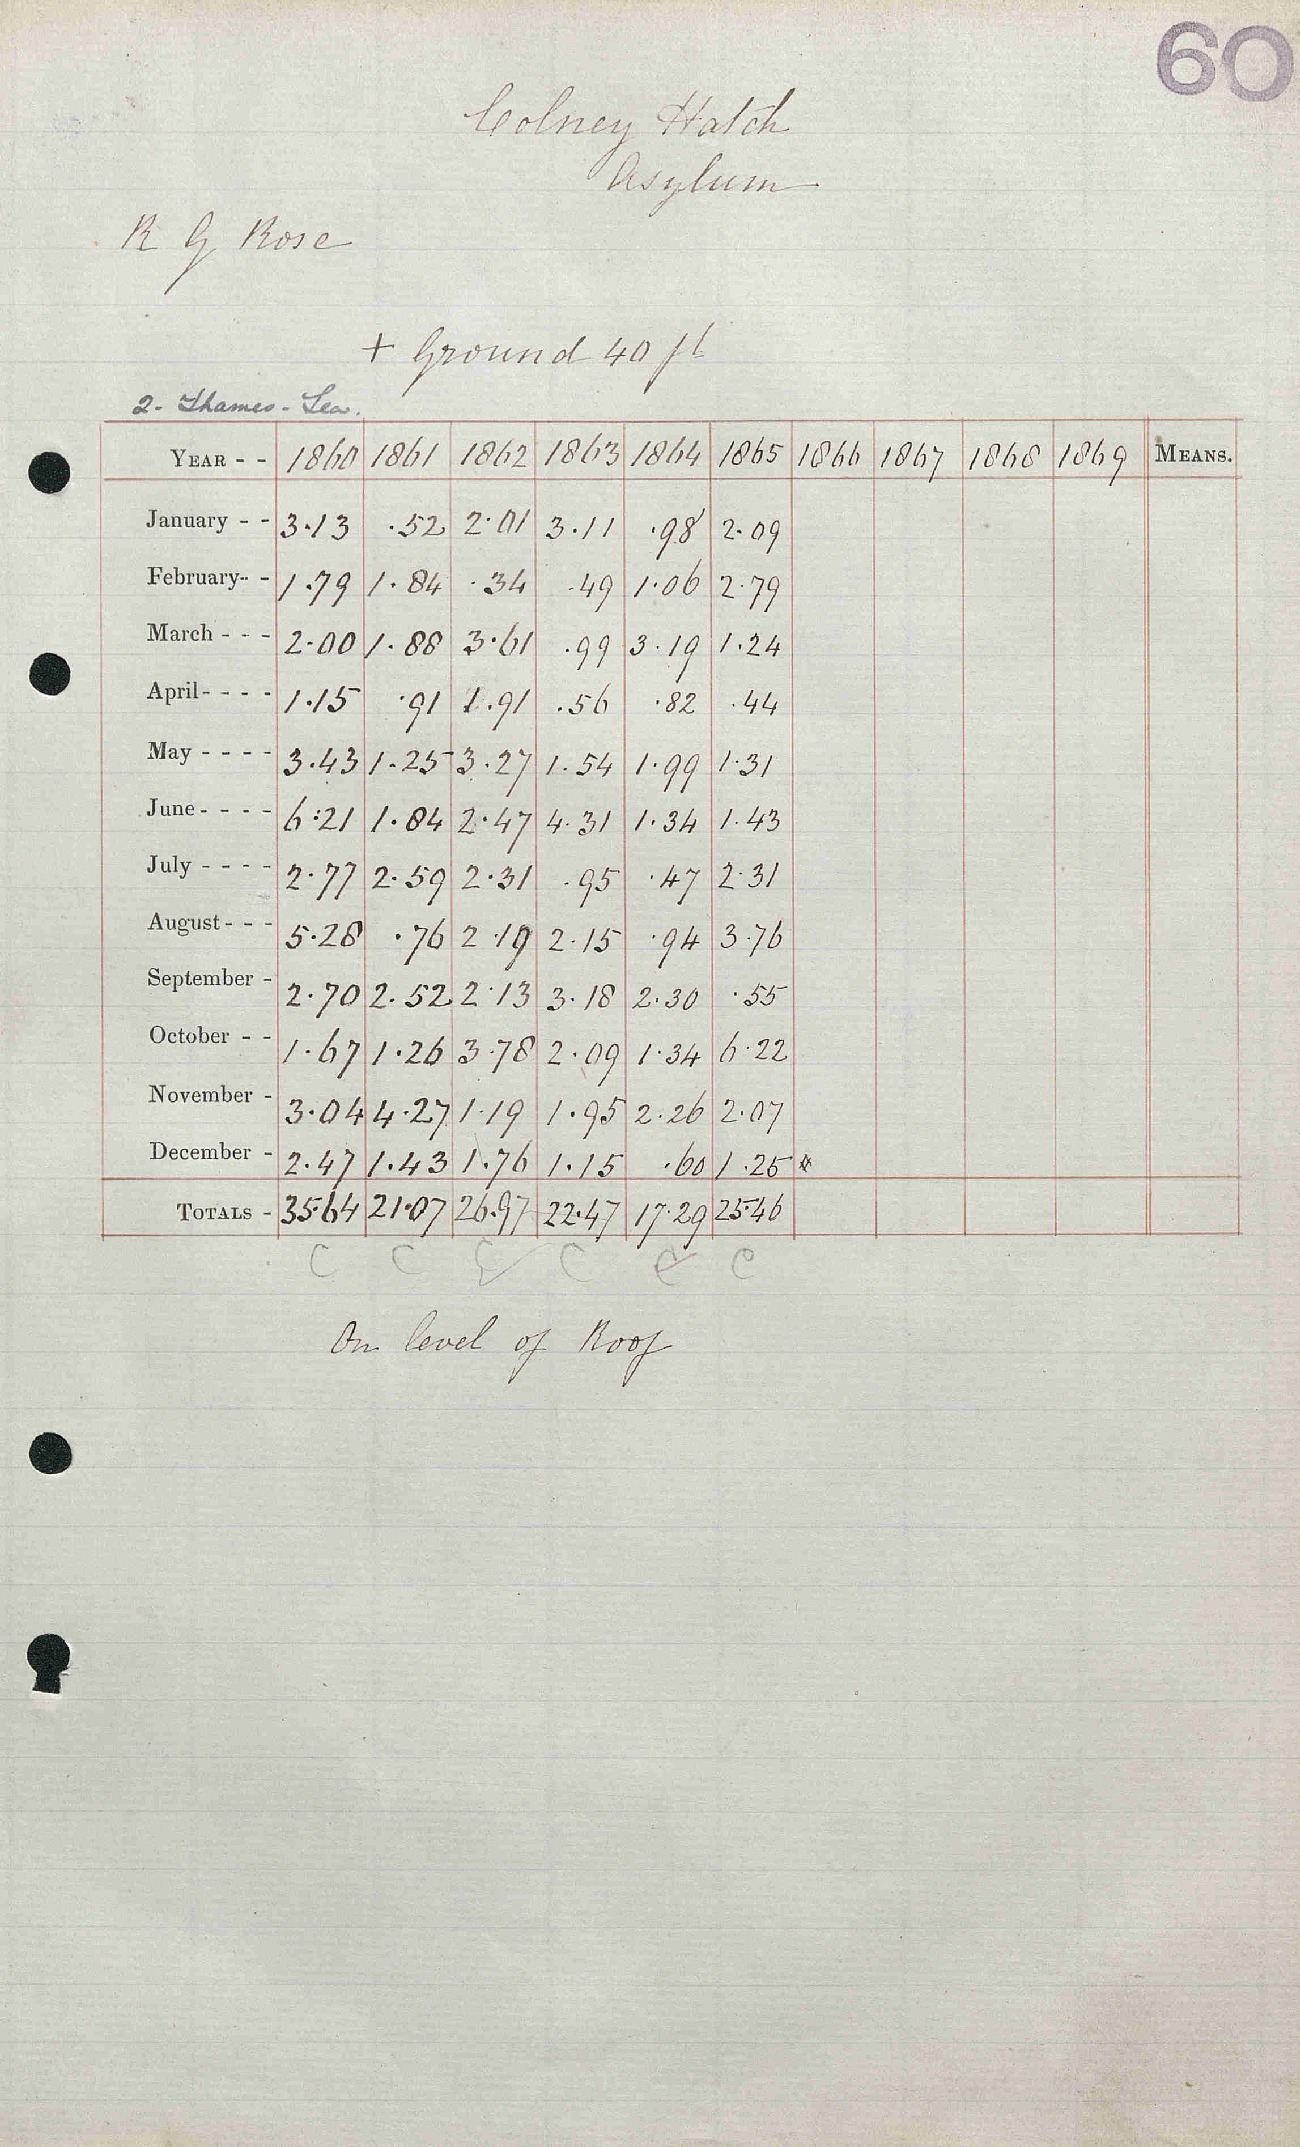 60
Colney Hatch
Asylum
R G Rose
+ Ground 40 ft
2- Thames - Lea.
YEAR - - 1860 1861 1862 1863 1864 1865 1866 1867 1868 1869 MEANS.
January - - 3.13 .52 2.01 3.11 .98 2.09
February- - 1.79 1.84 .34 .49 1.06 2.79
March - - - 2.00 1.88 3.61 .99 3.19 1.24
April - - - - 1.15 .91 1.91 .56 .82 .44
May - - - - 3.43 1.25 3.27 1.54 1.99 1.31
June - - - - 6.21 1.84 2.47 4.31 1.34 1.43
July - - - - 2.77 2.59 2.31 .95 .47 2.31
August - - - 5.28 .76 2.19 2.15 .94 3.76
September - 2.70 2.52 2.13 3.18 2.30 .55
October - - 1.67 1.26 3.78 2.09 1.34 6.22
November - 3.04 4.27 1.19 1.95 2.26 2.07
December - 2.47 1.43 1.76 1.15 .60 1.25 *
TOTALS - 35.64 21.07 26.97 22.47 17.29 25.46
C C C C C C
On level of Roof